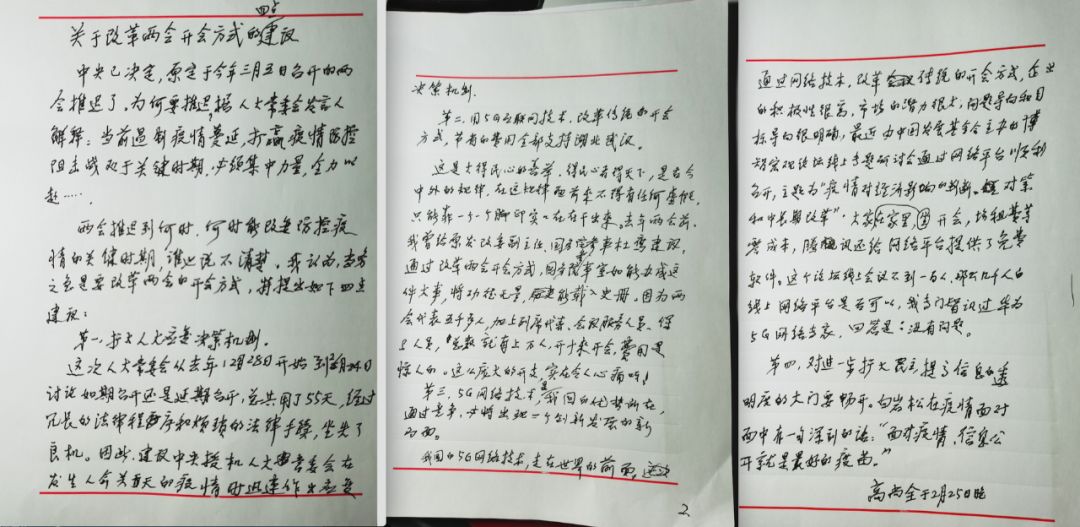 四点
关于改革两会开会方式的建议
中央已决定,原定于今年三月五日召开的两
会推迟了,为何要推迟,据人大常委会发言人
解释:当前遏制疫情蔓延,打赢疫情防控
阻击战处于关键时期,必须集中力量,全力以
赴……。
两会推迟到何时,何时能改进防控疫
情的关键时期,谁也说不清楚。我认为,当务
之急是要改革两会的开会方式,并提出如下四点
建议:
第一,扩大人大应急决策机制。
这次人大常委会从去年12月28日开始到2月24日
讨论如期召开还是延期召开,总共用了55天,经过
冗长的法律程序和烦琐的法律手续,坐失了
良机。因此,建议中央授权人大常委会在
发生人命关天的疫情时迅速作出应急
决策机制。
第二,用5G互联网技术,改革传统的开会
方式,节省的费用全部支持湖北武汉。
这是大得民心的善举,得民心者得天下,是古今
中外的规律,在这规律面前来不得有任何虚假,
只能靠一步一个脚印实实在在干出来。去年两会前,
我曾给原发改委副主任、国务院参事杜鹰建议,
通过改革两会开会方式,国务院参事室如能办成这
件大事,将功德无量,能载入史册。因为两
会代表五千多人,加上列席代表、会议服务人员、保
卫人员,总数就有上万人,开十来天会,费用是
惊人的。这么庞大的开支,实在令人心痛啊!
第三,5G网络技术是我国的优势所在,
通过竞争,必将出现一个创新发展的新
局面。
我国的5G网络技术,走在世界的前面,这次
2
通过网络技术,改革传统的开会方式,企业
的积极性很高,市场的潜力很大,问题导向和目
标导向很明确,最近由中国发展基金会主办的博
智宏观论坛线上专题研讨会通过网络平台顺利
召开,主题为“疫情对经济影响的判断、对策
和中长期改革”。大家在家里开会,场租费等
零成本,腾讯还给网络平台提供了免费
软件。这个论坛线上会议不到一百人,那么几千人的
线上网络平台是否可以,我专门咨询过华为
5G网络专家,回答是:没有问题。
第四,对进一步扩大民主,提高信息的透
明度的大门要畅开。白岩松在疫情面对
面中有一句深刻的话:“面对疫情,信息公
开就是最好的疫苗。”
高尚全于2月25日晚